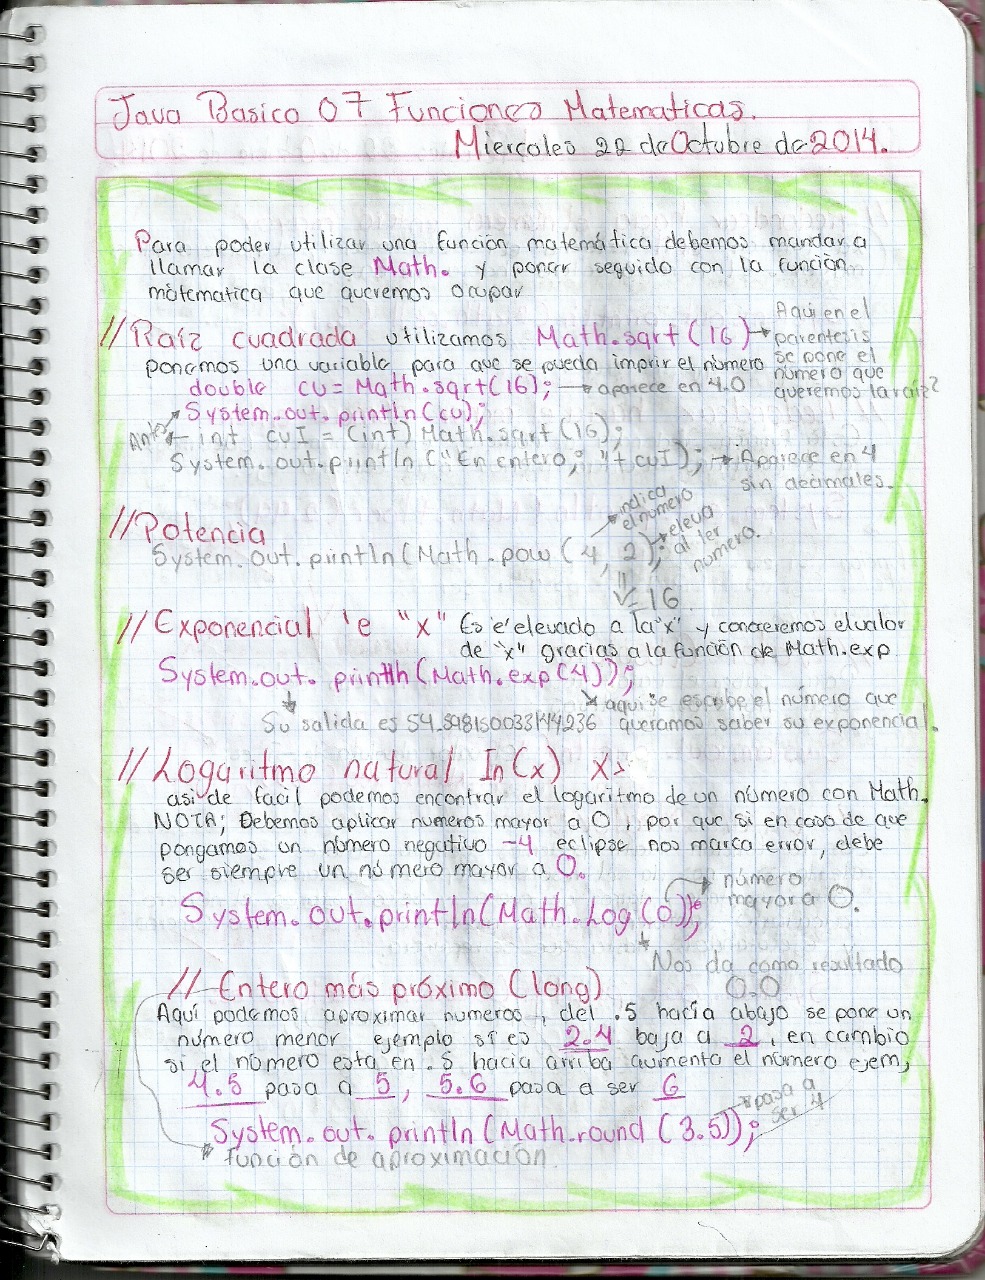 Java Basico 07 Funciones Matematicas.
Miercoles 22 de Octubre de 2014.
Para poder utilizar una función matemática debemos mandar a
llamar la clase Math. y poner seguido con la función
matematica que queremos ocupar
//Raíz cuadrada utilizamos Math.sqrt(16)
Aqui en el
parentesis
se pone el
número que
queremos la raiz?
ponemos una variable para que se pueda imprir el número
double cu = Math.sqrt(16); aparece en 4.0
System.out.println(cu);
Antes
int cuI = (int) Math.sqrt(16);
System.out.println ("En entero; "+cuI); Aparece en 4
sin decimales.
//Potencia
indica
el número
eleva
al 1er
número.
System.out.println(Math.pow(4,2);
=16
//Exponencial 'e "x" Es 'e' elevado a la 'x' y conoceremos el valor
de "x" gracias a la función de Math.exp
System.out.println(Math.exp(4));
aqui se escribe el número que
queramos saber su exponencial.
Su salida es 54.598150033144236
//Logaritmo natural In(x) x>
asi de facil podemos encontrar el logaritmo de un número con Math.
NOTA; Debemos aplicar numeros mayor a 0, por que si en caso de que
pongamos un número negativo -4 eclipse nos marca error, debe
ser siempre un número mayor a 0.
número
mayor a 0.
System.out.println(Math.Log(0));
Nos da como resultado
0.0
// Entero más próximo (long)
Aquí podemos aproximar numeros, del .5 hacía abajo se pone un
número menor ejemplo si es 2.4 baja a 2, en cambio
si el número esta en .5 hacia arriba aumenta el número ejem,
4.5 pasa a 5, 5.6 pasa a ser 6
pasa a
ser 4
System.out.println(Math.round(3.5));
función de aproximación.